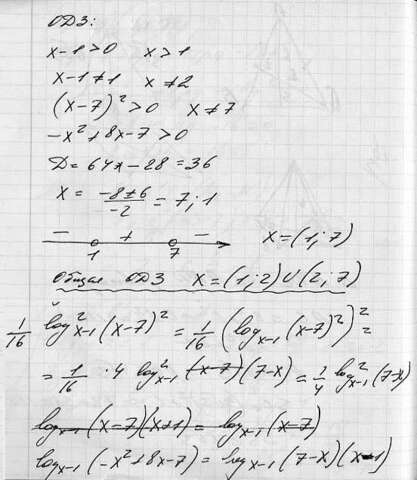 ОДЗ:
x-1>0 x>1
x-1≠1 x≠2
(x-7)²>0 x≠7
-x²+8x-7>0
D=64-28=36
x = (-8±6)/(-2) = 7;1
- + -
1 7 x=(1;7)
Общая ОДЗ x=(1;2)∪(2;7)
1/16 log²ₓ₋₁(x-7)² = 1/16 (logₓ₋₁(x-7)²)² =
= 1/16 · 4 log²ₓ₋₁ (x-7)(7-x) = 1/4 log²ₓ₋₁(7-x)
logₓ₋₁(x-7)(x+1) = logₓ₋₁(x-7)
logₓ₋₁(-x²+8x-7) = logₓ₋₁(7-x)(x-1)